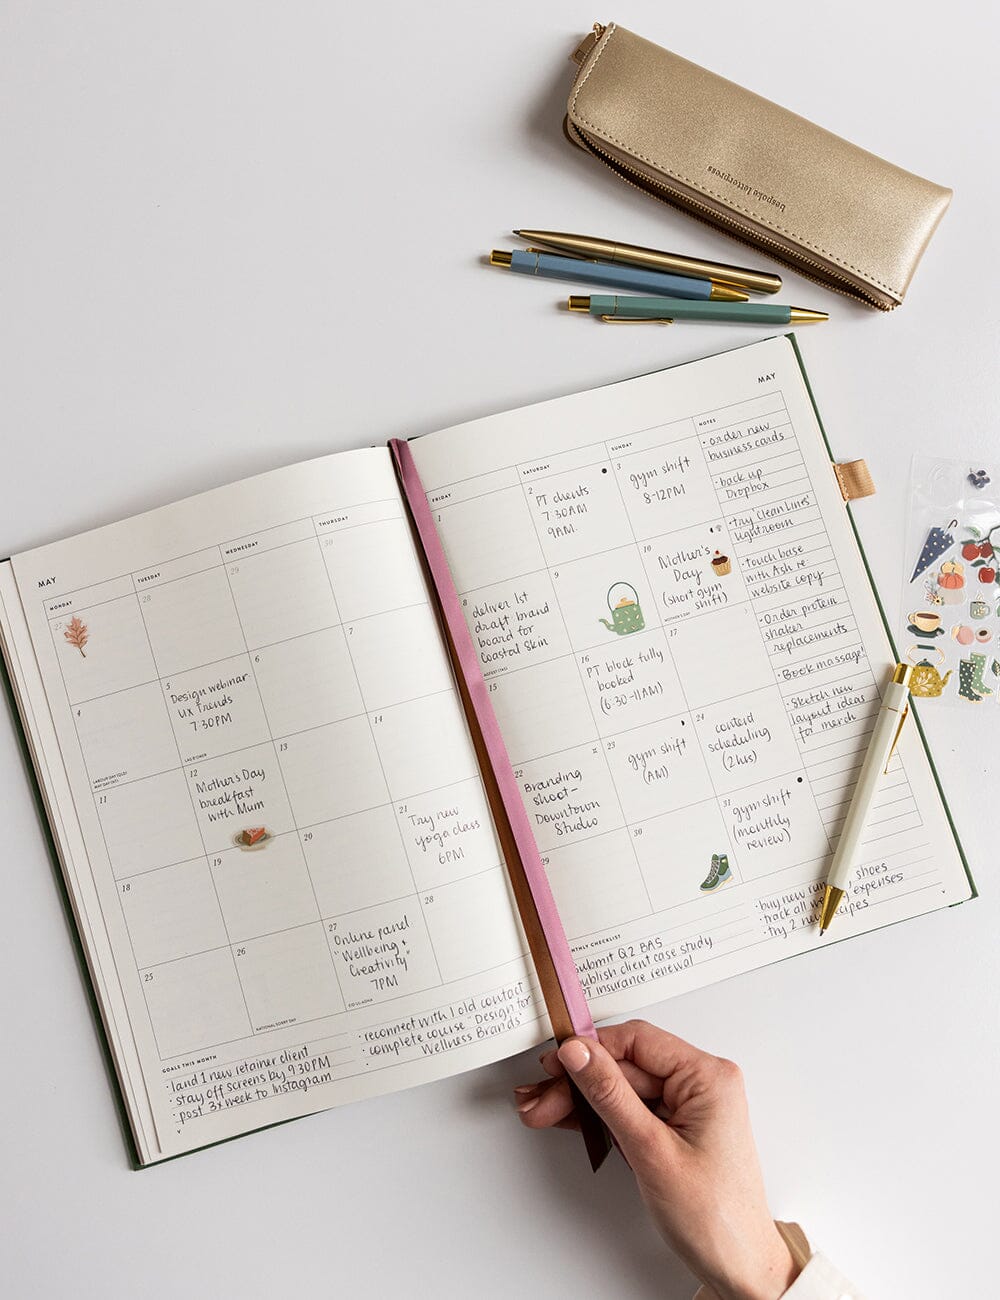 bespoke letterpress
MAY
MONDAY
TUESDAY
WEDNESDAY
THURSDAY
27
28
29
30
4
LABOUR DAY (QLD)
MAY DAY (NT)
5
Design webinar
UX Trends
7:30PM
6
7
11
12
Mother's Day
breakfast
with Mum
13
14
18
19
20
21
Try new
yoga class
6PM
25
26
NATIONAL SORRY DAY
27
Online panel
"Wellbeing +
Creativity"
7PM
EID UL-ADHA
28
GOALS THIS MONTH
• land 1 new retainer client
• stay off screens by 9:30PM
• post 3x week to Instagram
• reconnect with 1 old contact
• complete course "Design for
Wellness Brands"
MAY
FRIDAY
SATURDAY
SUNDAY
NOTES
1
2
PT clients
7:30AM
9AM
3
gym shift
8-12PM
8
deliver 1st
draft brand
board for
Coastal Skin
9
10
Mother's
Day
(short gym
shift)
MOTHER'S DAY
15
16
PT block fully
booked
(6:30-11AM)
17
22
Branding
shoot-
Downtown
Studio
23
gym shift
(AM)
24
content
scheduling
(2hrs)
29
30
31
gym shift
(monthly
review)
• order new
business cards
• back up
Dropbox
• try 'clean lines'
lightroom
• touch base
with Ash re
website copy
• Order protein
shaker
replacements
• Book massage!
• Sketch new
layout ideas
for merch
NTHLY CHECKLIST
submit Q2 BAS
publish client case study
PT insurance renewal
• buy new run shoes
• track all expenses
• try 2 new recipes